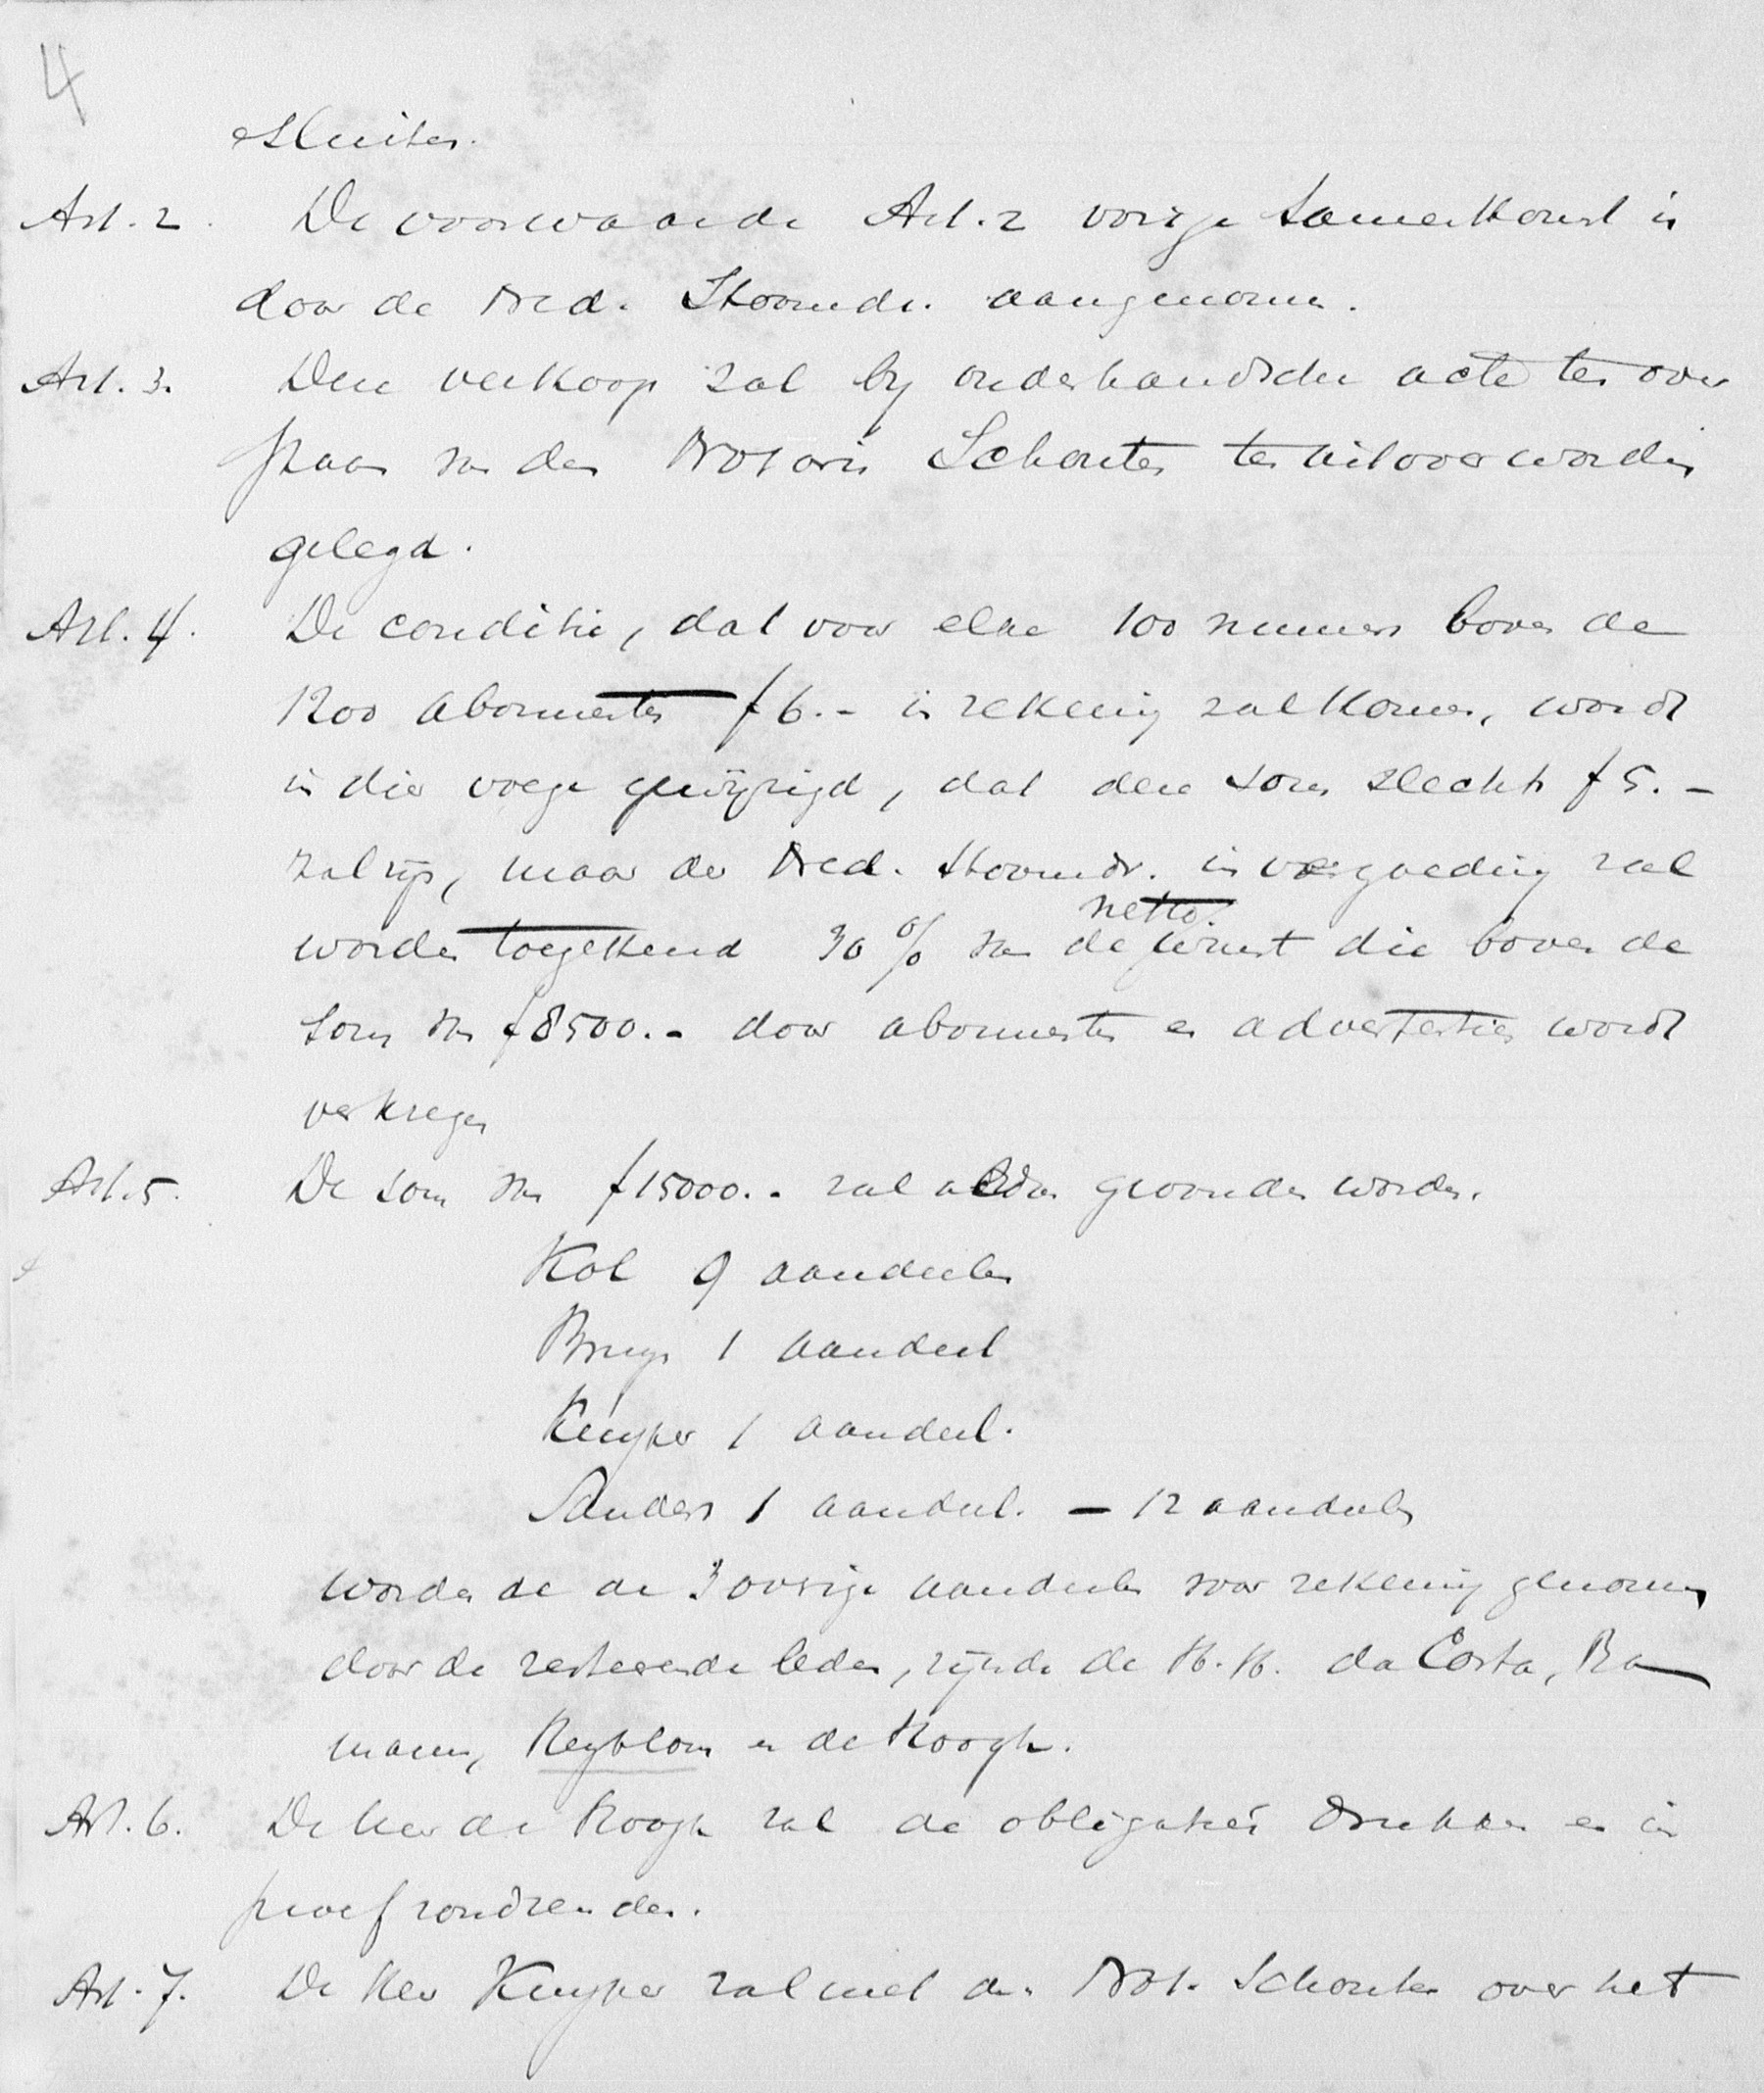 4
sluiten.
Art. 2. De voorwaarde Art. 2 vorige samenkomst is
door de Ned. Stoomdr. aangenomen.
Art. 3. Deze verkoop zal by onderhandsche acte ten over
staan van den Notaris Schouten ten uitvoer worden
gelegd.
Art. 4. De conditie, dat voor elke 100 nummers boven de
1200 abonnenten f 6.- in rekening zal komen, wordt
in dier voege gewijzigd, dat deze som slechts f 5.-
zal zijn, maar de Ned. Stoomdr. in vergoeding zal
worden toegekend 30 % van de netto winst die boven de
som van f 8500.- door abonnenten en advertentien wordt
verkregen
Art. 5. De som van f 15000.- zal aldus gevonden worden.
Kol 9 aandeelen
Bruyn 1 aandeel
Kuyper 1 aandeel.
Sanders 1 aandeel. — 12 aandeelen
worden de de 3 overige aandeelen voor rekening genomen
door de resteerende leden, zijnde de H.H. da Costa, Ba
mann, Reyblom en de Hoogh.
Art. 6. De heer de Hoogh zal de obligaties drukken en in
proef rondzenden.
Art. 7. De Heer Kuyper zal met den Not. Schouten over het